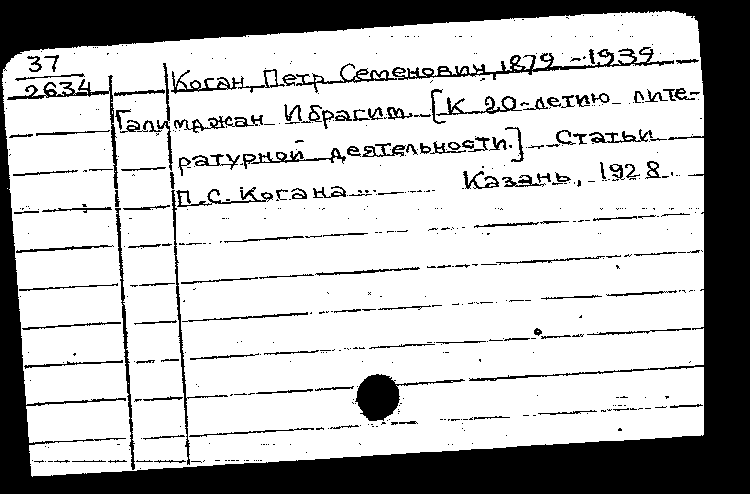 37
2634
Коган, Петр Семенович, 1879-1939
Галимджан Ибрагим. [К 20-летию лите-
ратурной деятельности.] Статьи
П.С. Когана...  Казань, 1928.